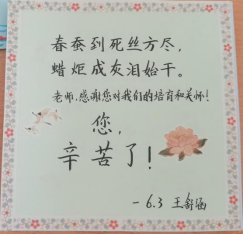 春蚕到死丝方尽,
蜡炬成灰泪始干。
老师,感谢您对我们的培育和关怀!
您,
辛苦了!
—6.3 王舒涵